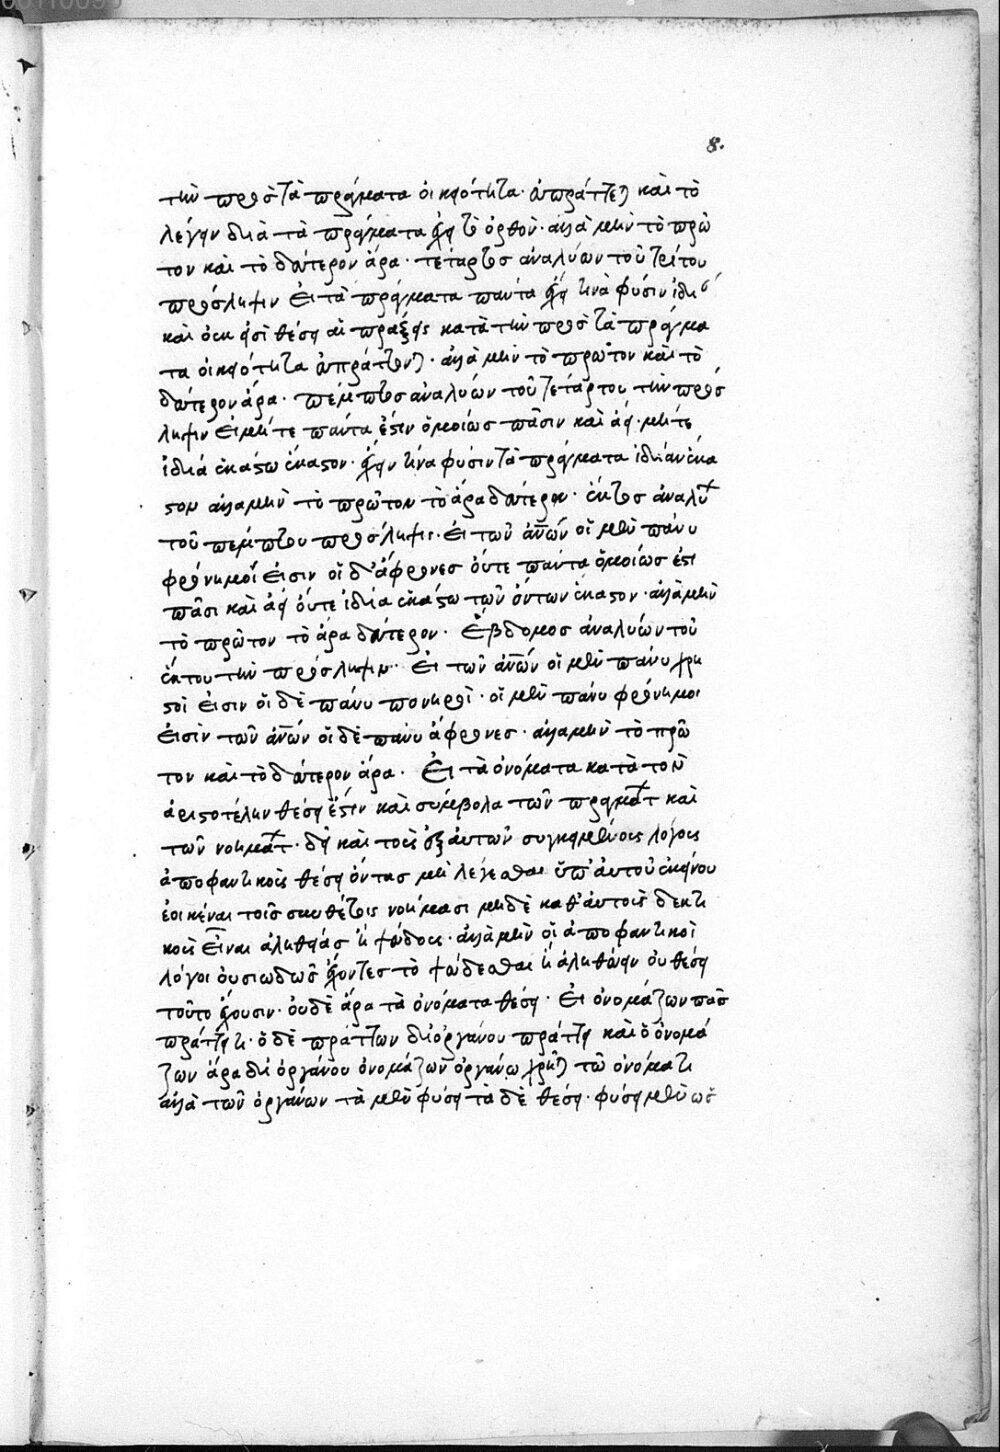 8.
τὴν πρὸς τὰ πράγματα οἰκειότητα. ἀπράττεται καὶ τὸ
λέγειν διὰ τὰ πράγματα ἔχει τὸ ὀρθόν. ἀλλὰ μὴν τὸ πρῶ
τον καὶ τὸ δεύτερον ἄρα. τέταρτος ἀναλύων τοῦ τρίτου
πρόσληψιν Εἰ τὰ πράγματα πάντα ἔχει τινὰ φύσιν ἰδι
καὶ οὐκ εἰσὶ θέσει αἱ πράξεις κατὰ τὴν πρὸς τὰ πράγμα
τα οἰκειότητα ἀπράττονται. ἀλλὰ μὴν τὸ πρῶτον καὶ τὸ
δεύτερον ἄρα. πέμπτος ἀναλύων τοῦ τετάρτου τὴν πρόσ
ληψιν εἰ μήτε πάντα ἐστὶν ὁμοίως πᾶσιν καὶ ἀεί. μήτε
ἰδίᾳ ἑκάστῳ ἕκαστον. ἔχειν τινα φύσιν τὰ πράγματα ἰδίαν ἕκα
στον ἀλλὰ μὴν τὸ πρῶτον τὸ ἄρα δεύτερον. ἕκτος ἀναλύ
τοῦ πέμπτου πρόσληψις. εἰ τῶν ἀν̅ων οἱ μὲν πάνυ
φρόνιμοί εἰσιν οἱ δ' ἄφρονες οὔτε πάντα ὁμοίως ἐστὶ
πᾶσι καὶ ἀεὶ οὔτε ἰδίᾳ ἑκάστῳ τῶν ὄντων ἕκαστον. ἀλλὰ μὴν
τὸ πρῶτον τὸ ἄρα δεύτερον. Ἕβδομος ἀναλύων τοῦ
ἕκτου τὴν πρόσληψιν. Εἰ τῶν ἀν̅ων οἱ μὲν πάνυ χρη
στοί εἰσιν οἱ δὲ πάνυ πονηροὶ. οἱ μὲν πάνυ φρόνιμοι
εἰσὶν τῶν ἀν̅ων οἱ δὲ πάνυ ἄφρονες. ἀλλὰ μὴν τὸ πρῶ
τον καὶ τὸ δεύτερον ἄρα. Εἰ τὰ ὀνόματα κατὰ τὸν
ἀριστοτέλην θέσει ἐστὶν καὶ σύμβολα τῶν πραγμάτ καὶ
τῶν νοημάτ. δεῖ καὶ τοὺς ἐξ αὐτῶν συγκειμένους λόγους
ἀποφαντικοὺς θέσει ὄντας μὴ λέγεσθαι ὑπ' αὐτοῦ ἐκείνου
ἐοικέναι τοῖς συνθέτοις νοήμασι μηδὲ καθ' αὑτοὺς δεκτι
κοὺς εἶναι ἀληθείας ἢ ψεύδους. ἀλλὰ μὴν οἱ ἀποφαντικοὶ
λόγοι οὐσιωδῶς ἔχοντες τὸ ψεύδεσθαι ἢ ἀληθεύειν οὐ θέσει
τοῦτο ἔχουσιν. οὐδὲ ἄρα τὰ ὀνόματα θέσει. Εἰ ὀνομάζων πᾶς
πράττει τι. ὁ δὲ πράττων δι' ὀργάνου πράττει καὶ ὁ ὀνομά
ζων ἄρα δι' ὀργάνου ὀνομάζων ὀργάνῳ χρῆται τῷ ὀνόματι
ἀλλὰ τῶν ὀργάνων τὰ μὲν φύσει τὰ δὲ θέσει. φύσει μὲν ὡς